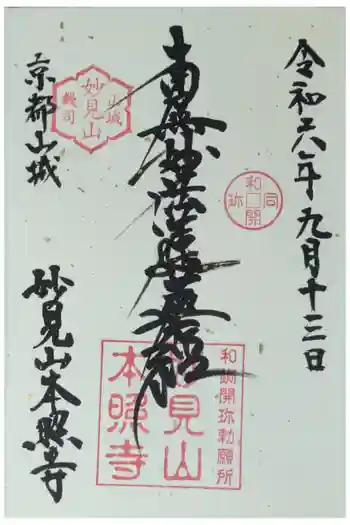 令和六年九月十三日
南無妙法蓮華経
京都山城
妙見山本照寺
山城
妙見山
鶴司
和同開珎
和銅開珎勅願所
妙見山
本照寺